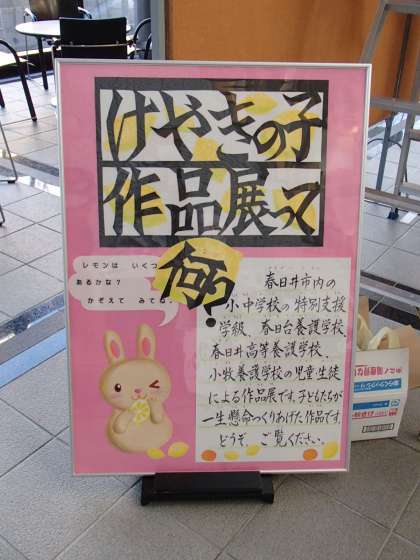 けやきの子
作品展って
何？
レモンは いくつ
あるかな？
かぞえて みてね
春日井市内の
小中学校の特別支援
学級、春日台養護学校、
春日井高等養護学校、
小牧養護学校の児童生徒
による作品展です。子どもたちが
一生懸命つくりあげた作品です。
どうぞ、ご覧ください。